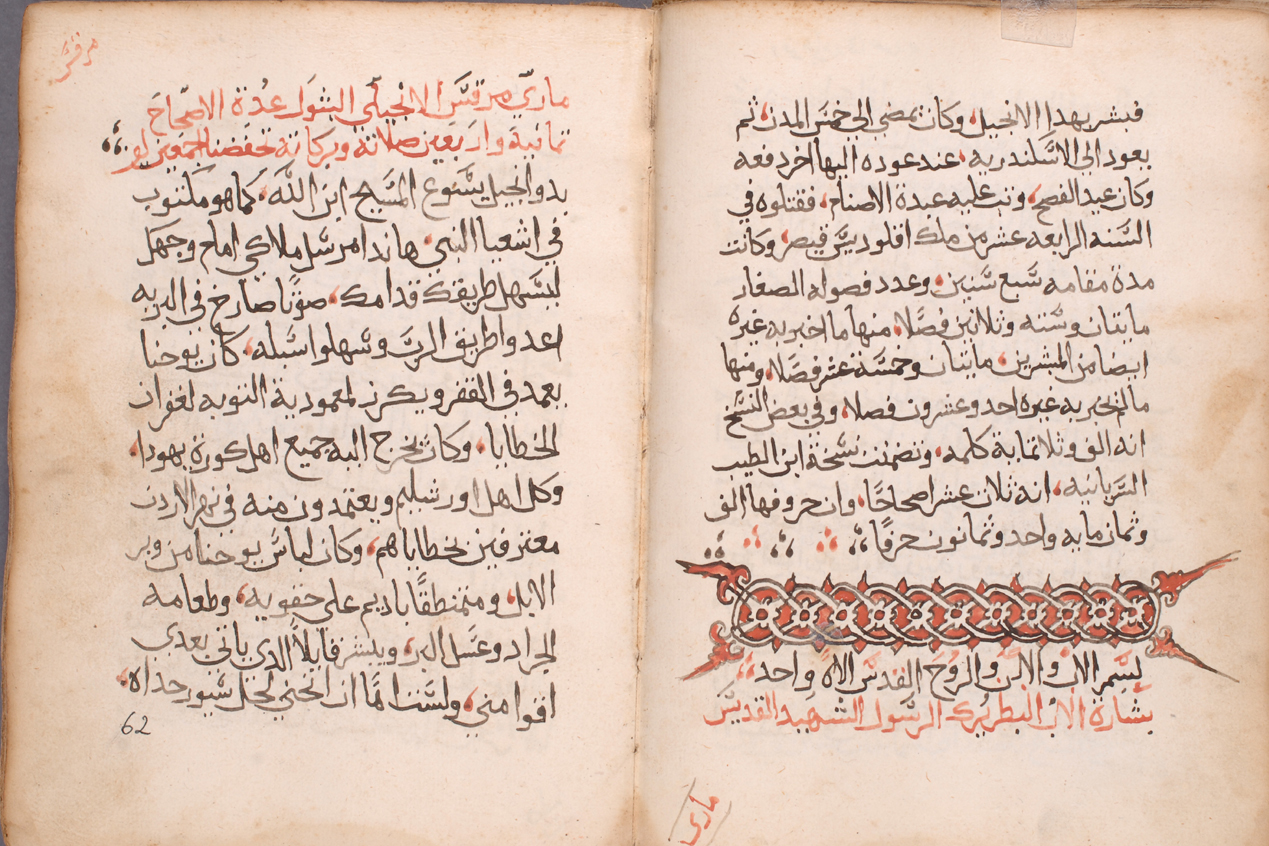 فبشر بهدا الانجيل وكان يمضي الي خمس المدن ثم
يعود الي الاسكندريه عند عوده اليها اخر دفعه
وكان عيد الفصح وثب عليه عبدة الاصنام فقتلوه في
السنه الرابعه عشر من ملك اقلوديس قيصر وكانت
مدة مقامه سبع سنين وعدد فصوله الصغار
مايتان وسته وثلاثين فصلا منها ما اخبر به غيره
ايضا من المبشرين مايتان وخمسة عشر فصلا ومنها
ما لم يخبر به غيره احد وعشرون فصلا وفي بعض النسخ
انه الف وثلاثماية كلمه وتضمنت نسخة ابن الطيب
السريانيه انه ثلاث عشر اصحاحا وان حروفها الف
وثمان مايه واحد وثمانون حرفا
بسم الاب والابن والروح القدس الاه واحد
بشارة الاب البطريرك الرسول الشهيد القديس
ماري
مرقس
ماري مرقس الانجيلي البتول عدة الاصحاح
ثمانية واربعين صلاته وبركاته تحفضنا اجمعين
بدو انجيل يسوع المسيح ابن الله كما هو مكتوب
في اشعيا النبي هاندا مرسل ملاكي امام وجهك
ليسهل طريقك قدامك صوتا صارخ في البريه
اعدوا طريق الرب وسهلوا سبله كان يوحنا
يعمد في القفر ويكرز لمعمودية التوبه لغفران
الخطايا وكان يخرج اليه جميع اهل كورة يهودا
وكل اهل اورشليم ويعتمدون منه في نهر الاردن
معترفين بخطاياهم وكان لباس يوحنا من وبر
الابل ومتمنطقا باديم علي حقويه وطعامه
الجراد وعسل البر ويبشر قايلا الدي ياتي بعدي
اقوا مني ولست انا ان انحني لحل سيور حداه
62